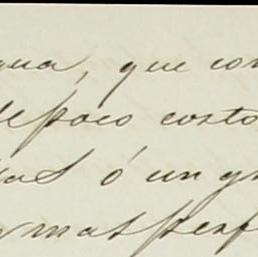 gua, que con
depoco costo
ias ó un gr
y mas perf